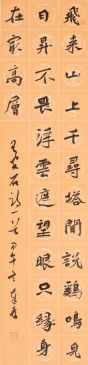 飛来山上千尋塔聞説鷄鳴見
日昇不畏浮雲遮望眼只緣身
在最高層
王安石詩一首